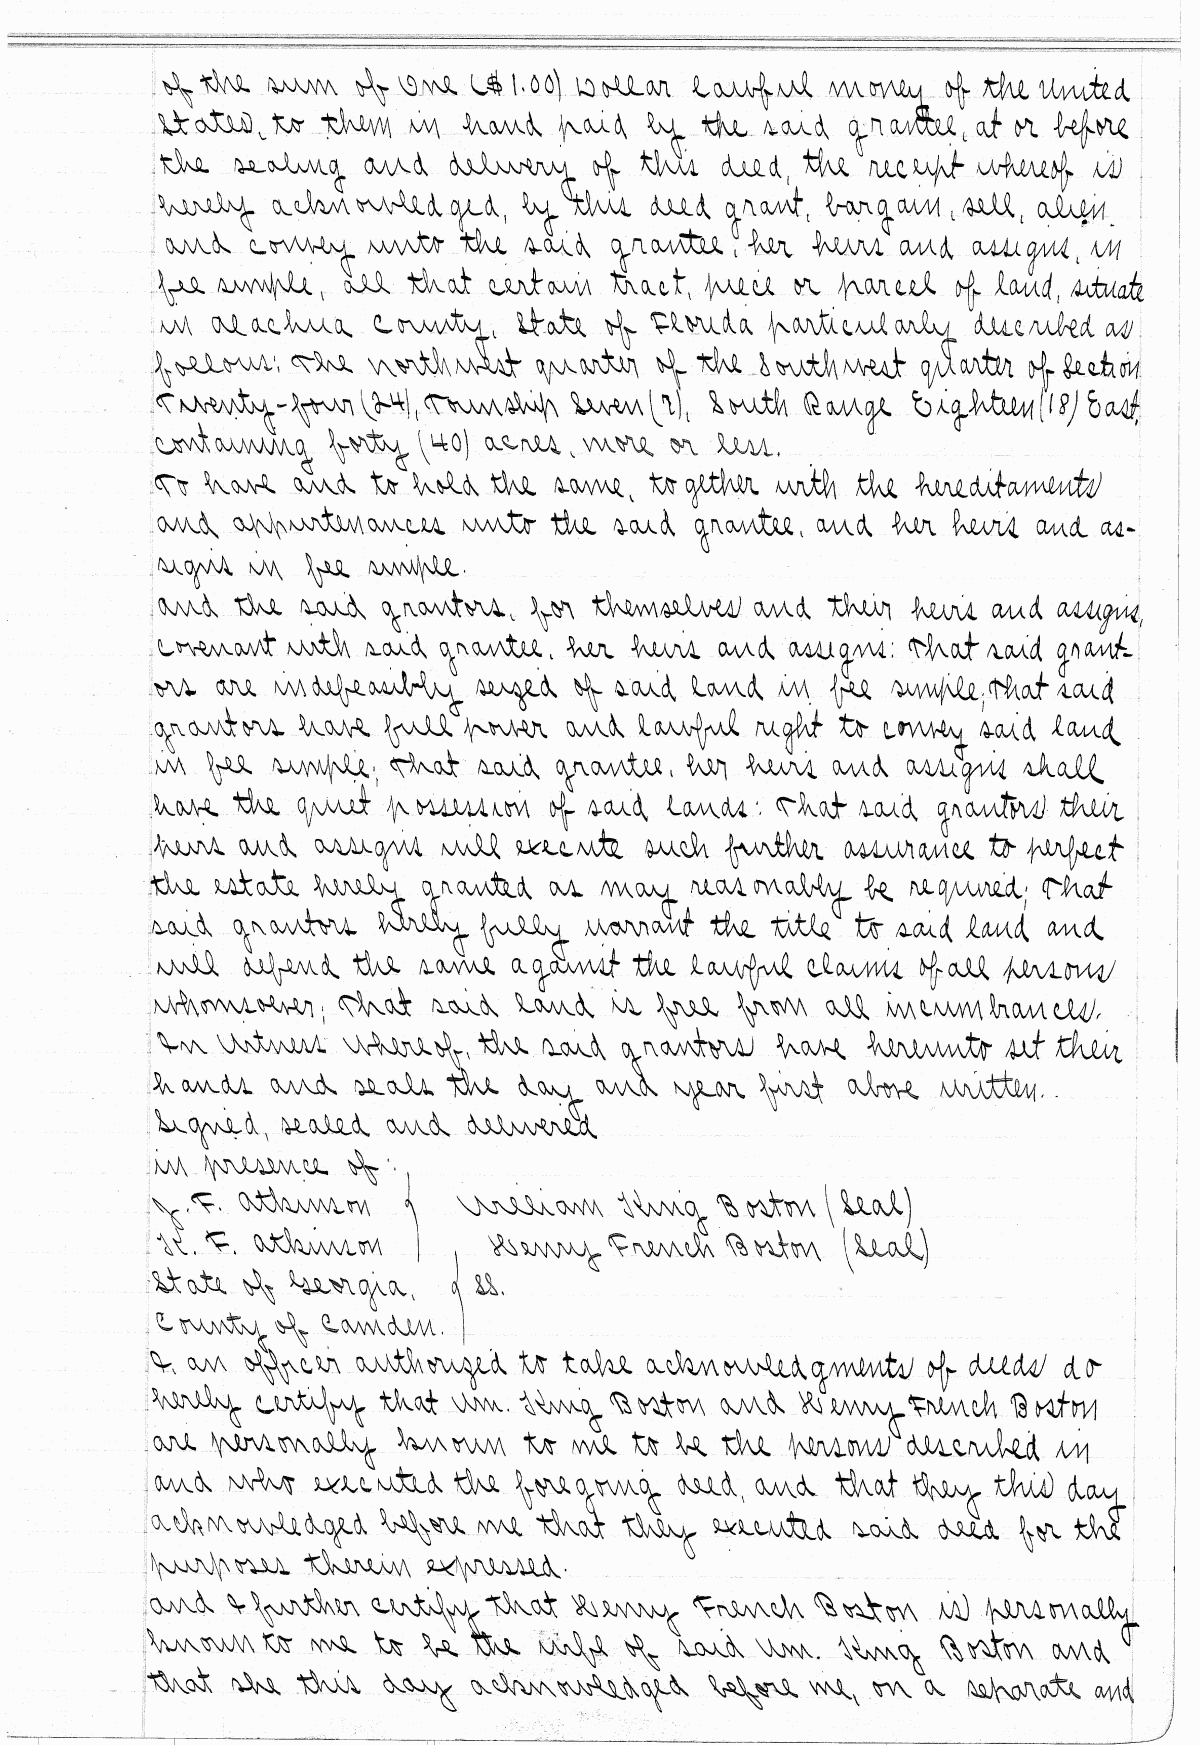 of the sum of One ($1.00) Dollar lawful money of the United
States, to them in hand paid by the said grantee, at or before
the sealing and delivery of this deed, the receipt whereof is
hereby acknowledged, by this deed grant, bargain, sell, alien
and convey unto the said grantee, her heirs and assigns, in
fee simple, all that certain tract, piece or parcel of land, situate
in Alachua County, State of Florida particularly described as
follows: The northwest quarter of the Southwest quarter of Section
Twenty-four (24), Township Seven (7), South Range Eighteen (18) East,
containing forty (40) acres, more or less.
To have and to hold the same, together with the hereditaments
and appurtenances unto the said grantee, and her heirs and as-
signs in fee simple.
And the said grantors, for themselves and their heirs and assigns,
covenant with said grantee, her heirs and assigns: That said grant-
ors are indefeasibly seized of said land in fee simple; That said
grantors have full power and lawful right to convey said land
in fee simple; That said grantee, her heirs and assigns shall
have the quiet possession of said lands: That said grantors their
heirs and assigns will execute such further assurance to perfect
the estate hereby granted as may reasonably be required; That
said grantors hereby fully warrant the title to said land and
will defend the same against the lawful claims of all persons
whomsoever; That said land is free from all incumbrances.
In Witness Whereof, the said grantors have hereunto set their
hands and seals the day and year first above written.
Signed, sealed and delivered
in presence of:
J. F. Atkinson William King Boston (Seal)
K. F. Atkinson Henry French Boston (Seal)
State of Georgia, SS.
County of Camden.
I, an officer authorized to take acknowledgments of deeds do
hereby certify that Wm. King Boston and Henry French Boston
are personally known to me to be the persons described in
and who executed the foregoing deed, and that they this day
acknowledged before me that they executed said deed for the
purposes therein expressed.
And I further certify that Henry French Boston is personally
known to me to be the wife of said Wm. King Boston and
that she this day acknowledged before me, on a separate and